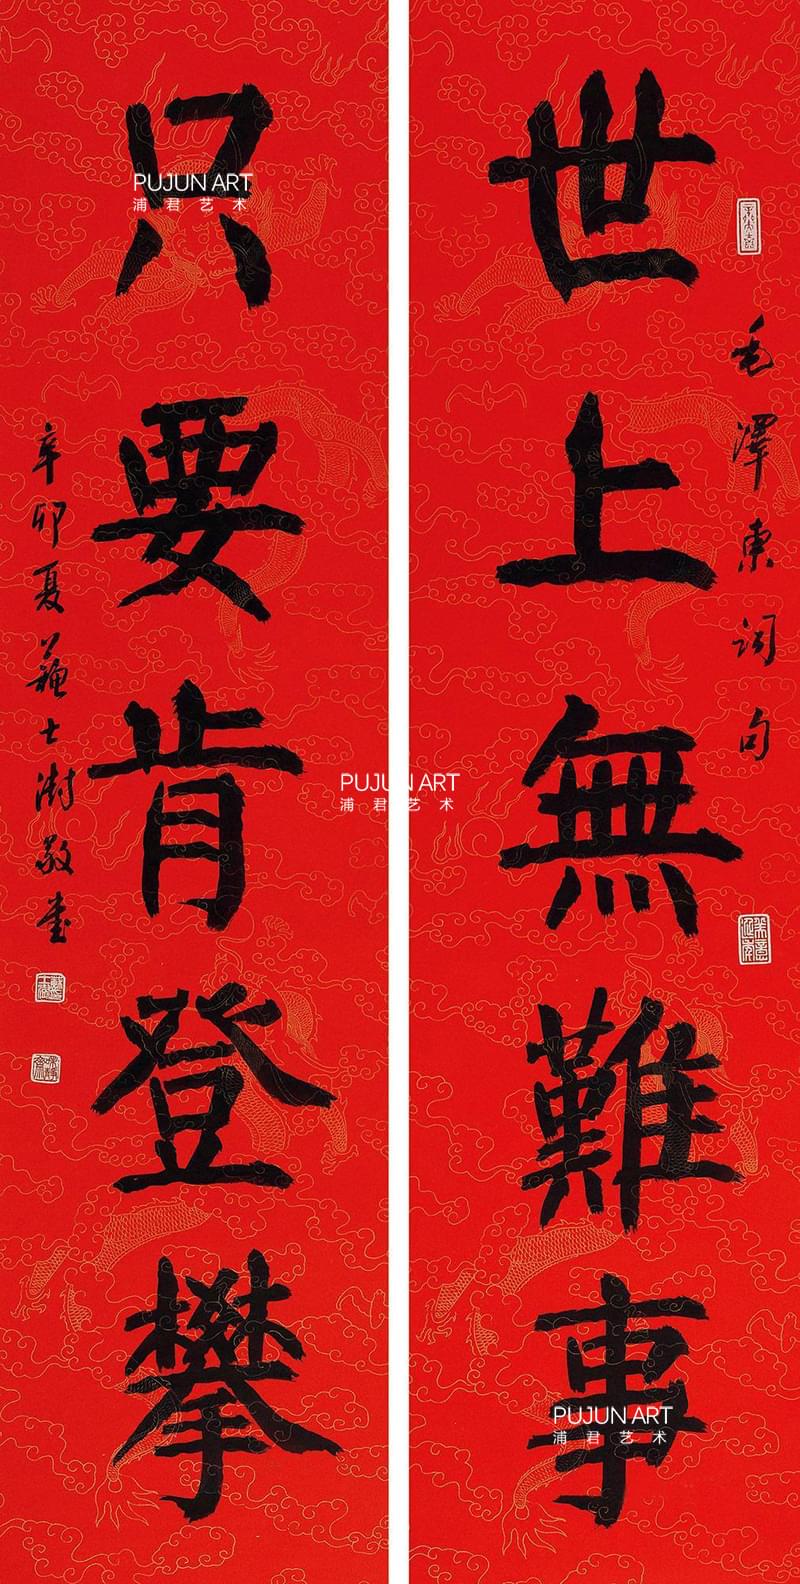 世上無難事
毛澤東詞句
只要肯登攀
辛卯夏蘇士澍敬書
PUJUN ART
浦君艺术
PUJUN ART
浦君艺术
PUJUN ART
浦君艺术